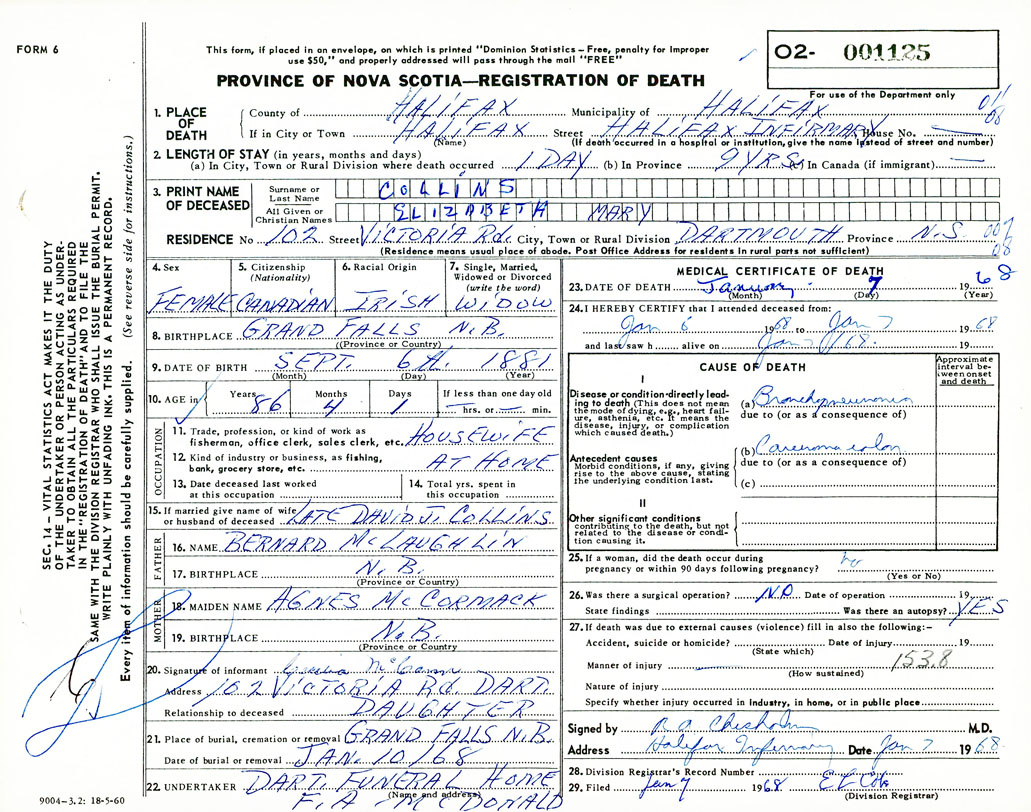 FORM 6
This form, if placed in an envelope, on which is printed "Dominion Statistics – Free, penalty for improper
use $50," and properly addressed will pass through the mail "FREE"
O2- 001125
PROVINCE OF NOVA SCOTIA—REGISTRATION OF DEATH
For use of the Department only
1. PLACE OF DEATH County of HALIFAX Municipality of HALIFAX
If in City or Town HALIFAX Street HALIFAX INFIRMARY House No. —
(Name) (If death occurred in a hospital or institution, give the name instead of street and number)
2. LENGTH OF STAY (in years, months and days)
(a) In City, Town or Rural Division where death occurred 1 DAY (b) In Province 9 YRS. In Canada (if immigrant) —
3. PRINT NAME OF DECEASED Surname or Last Name COLLINS
All Given or Christian Names ELIZABETH MARY
RESIDENCE No 102 Street VICTORIA Rd. City, Town or Rural Division DARTMOUTH Province N.S.
(Residence means usual place of abode. Post Office Address for residents in rural parts not sufficient)
4. Sex FEMALE
5. Citizenship (Nationality) CANADIAN
6. Racial Origin IRISH
7. Single, Married, Widowed or Divorced (write the word) WIDOW
8. BIRTHPLACE GRAND FALLS N.B.
(Province or Country)
9. DATE OF BIRTH SEPT. 6th. 1881
(Month) (Day) (Year)
10. AGE in Years 86 Months 4 Days 1 If less than one day old — hrs. or — min.
OCCUPATION
11. Trade, profession, or kind of work as
fisherman, office clerk, sales clerk, etc. HOUSEWIFE
12. Kind of industry or business, as fishing,
bank, grocery store, etc. AT HOME
13. Date deceased last worked
at this occupation
14. Total yrs. spent in
this occupation
15. If married give name of wife
or husband of deceased LATE DAVID J. COLLINS
FATHER
16. NAME BERNARD McLAUGHLIN
17. BIRTHPLACE N.B.
(Province or Country)
MOTHER
18. MAIDEN NAME AGNES McCORMACK
19. BIRTHPLACE N.B.
(Province or Country
20. Signature of informant
Address 102 VICTORIA Rd DART.
Relationship to deceased DAUGHTER
21. Place of burial, cremation or removal GRAND FALLS N.B.
Date of burial or removal JAN. 10/68
22. UNDERTAKER DART. FUNERAL HOME
(Name and address)
F. A. McDONALD
9004–3.2: 18-5-60
MEDICAL CERTIFICATE OF DEATH
23. DATE OF DEATH January 7 1968
(Month) (Day) (Year)
24. I HEREBY CERTIFY that I attended deceased from:
Jan 6 1968 to Jan 7 1968
and last saw h alive on Jan 7/68.
CAUSE OF DEATH
Approximate interval between onset and death
I
Disease or condition directly leading to death (This does not mean the mode of dying, e.g., heart failure, asthenia, etc. It means the disease, injury, or complication which caused death.)
(a) Bronchopneumonia
due to (or as a consequence of)
Antecedent causes
Morbid conditions, if any, giving rise to the above cause, stating the underlying condition last.
(b) Carcinoma colon
due to (or as a consequence of)
(c)
II
Other significant conditions
contributing to the death, but not related to the disease or condition causing it.
25. If a woman, did the death occur during
pregnancy or within 90 days following pregnancy? no
(Yes or No)
26. Was there a surgical operation? NO Date of operation 19
State findings Was there an autopsy? YES
27. If death was due to external causes (violence) fill in also the following:–
Accident, suicide or homicide? Date of injury 19
(State which)
Manner of injury 153.8
(How sustained)
Nature of injury
Specify whether injury occurred in industry, in home, or in public place
Signed by R A Chisholm M.D.
Address Halifax Infirmary Date Jan 7 1968
28. Division Registrar's Record Number
29. Filed Jan 7 1968
(Division Registrar)
SEC. 14 – VITAL STATISTICS ACT MAKES IT THE DUTY
OF THE UNDERTAKER OR PERSON ACTING AS UNDER-
TAKER TO OBTAIN ALL THE PARTICULARS REQUIRED
IN THE "REGISTRATION OF DEATH" AND TO FILE THE
SAME WITH THE DIVISION REGISTRAR WHO SHALL ISSUE THE BURIAL PERMIT.
WRITE PLAINLY WITH UNFADING INK. THIS IS A PERMANENT RECORD.
Every item of information should be carefully supplied. (See reverse side for instructions.)